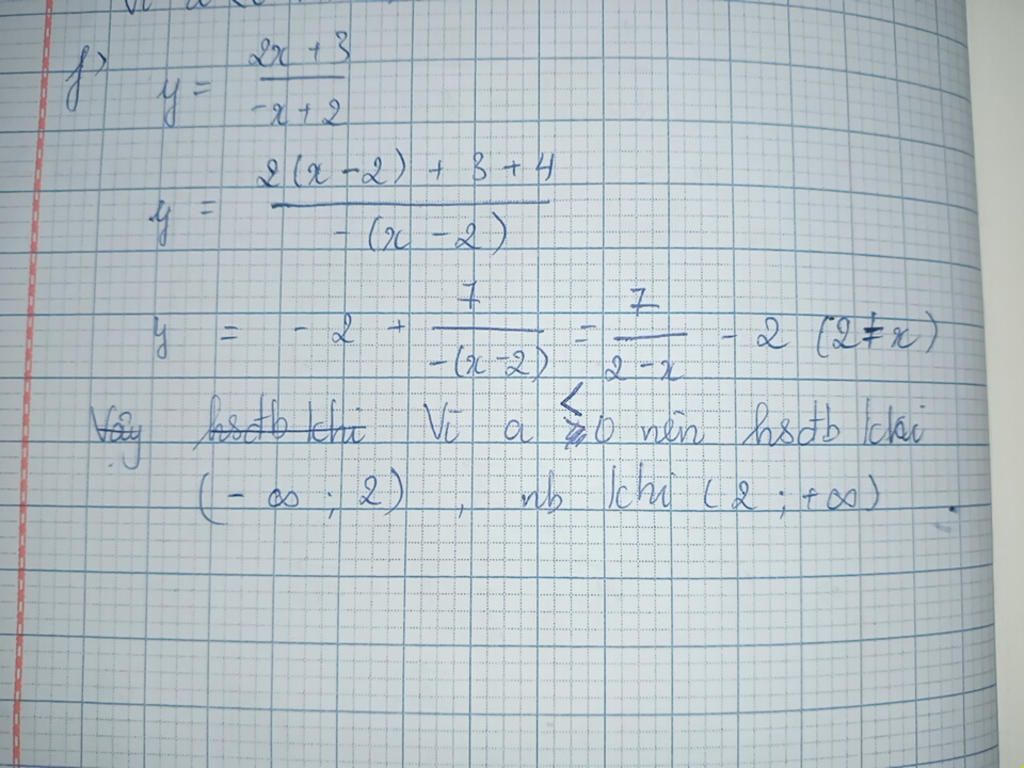 f) y = \frac{2x + 3}{-x + 2}
y = \frac{2(x - 2) + 3 + 4}{-(x - 2)}
y = - 2 + \frac{7}{-(x - 2)} = \frac{7}{2 - x} - 2 (2 ≠ x)
Vậy hsđb khi Vì a < 0 nên hsđb khi
(- ∞ ; 2) , nb khi (2 ; +∞)